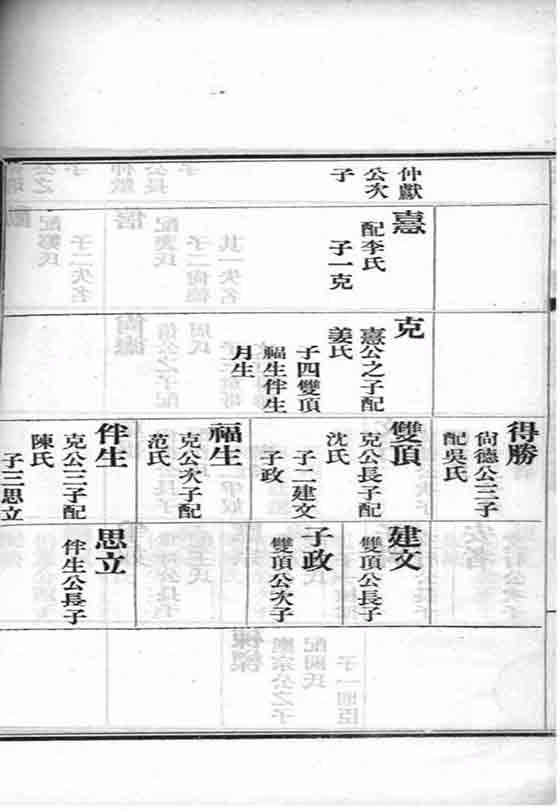 仲獻
公次
子
憲
配李氏
子一克
克
憲公之子配
姜氏
子四雙頂
福生伴生
月生
得勝
尙德公三子
配吳氏
雙頂
克公長子配
沈氏
子二建文
子政
福生
克公次子配
范氏
伴生
克公三子配
陳氏
子三思立
建文
雙頂公長子
子政
雙頂公次子
思立
伴生公長子